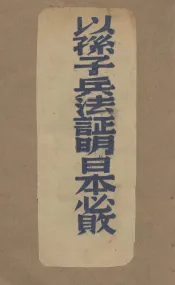 以孫子兵法証明日本必敗